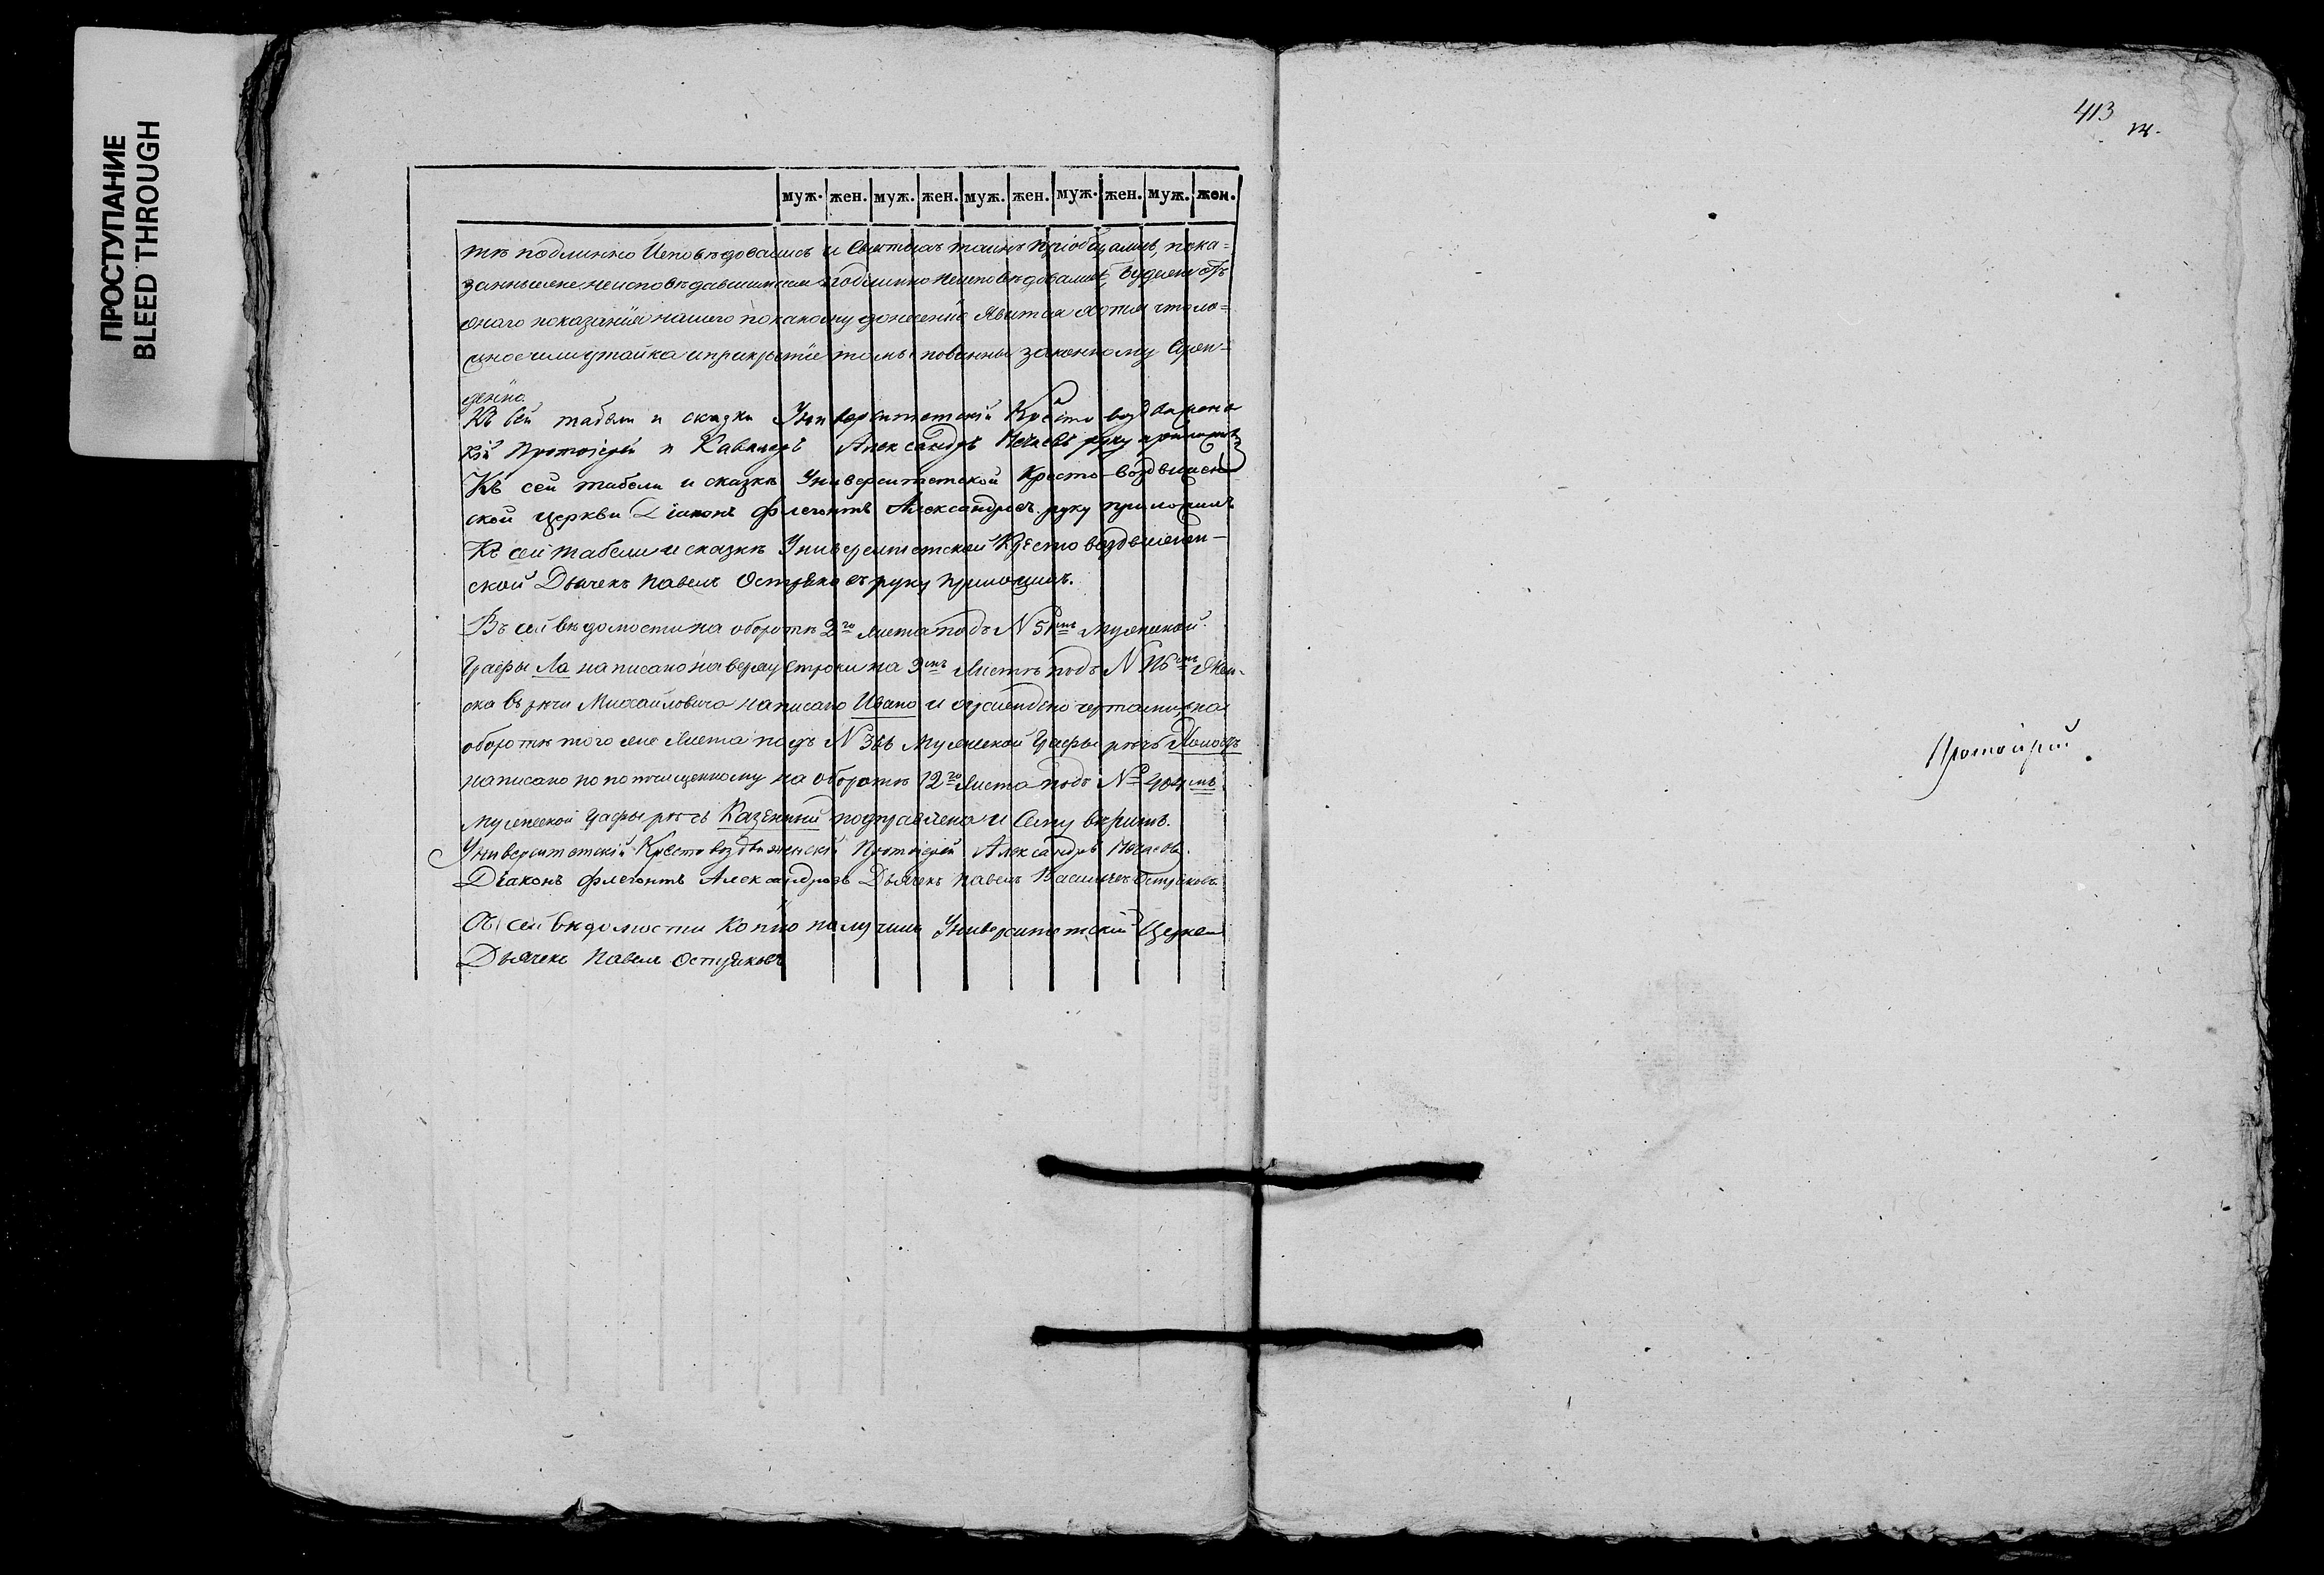 ПРОСТУПАНИЕ
BLEED THROUGH
муж. жен. муж. жен. муж. жен. муж. жен. муж. жен.
тѣ подлинно Исповѣдовались и Святыхъ таинъ пріобщались, пока=
занныеже неисповѣдавшимися подлинно неисповѣдовались, Буделиже отъ
онаго показанія нашего по какому донесенію Явится хотя что ло=
жное или утайка и прикрытіе то мы повинны законному Сужде-
денію.
Къ сей табели и сказки Университетскій Кресто воздвижен
кій Протоіерей и Кавалеръ Александръ Нечаевъ руку приложилъ
Къ сей табели и сказкѣ Университетской Кресто-воздвижен
ской церкви Діаконъ Флегонтъ Александровъ руку приложилъ
Къ сей табели и сказкѣ Университетской Крестовоздвижен-
ской Дьячекъ Павелъ Остряковъ руку приложилъ.
Въ сей вѣдомости на оборотѣ 2го листа подъ N 51мъ мужеской
Графы Ла написано на верху строки на 9мъ Листѣ подъ N
ска въ рѣчи Михайловича написано Ивано и очерчено чертами, на
оборотѣ того же Листа подъ N мужеской Графы рѣчь
написано по почищенному на оборотѣ 12го Листа подъ № 404мъ
мужеской графы рѣчь Казенный подправлена и Сему вѣрить.
Университетскій Крестовоздвиженскій Протоіерей Александръ Нечаевъ.
Діаконъ Флегонтъ Александровъ Дьячекъ Павелъ Васильевъ Остряковъ
Съ сей вѣдомости копію получилъ Университетской Церкви
Дьячекъ Павелъ Остряковъ
413
Протоіерей